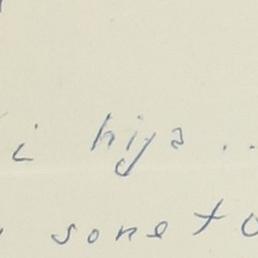 i hija ..
sone to